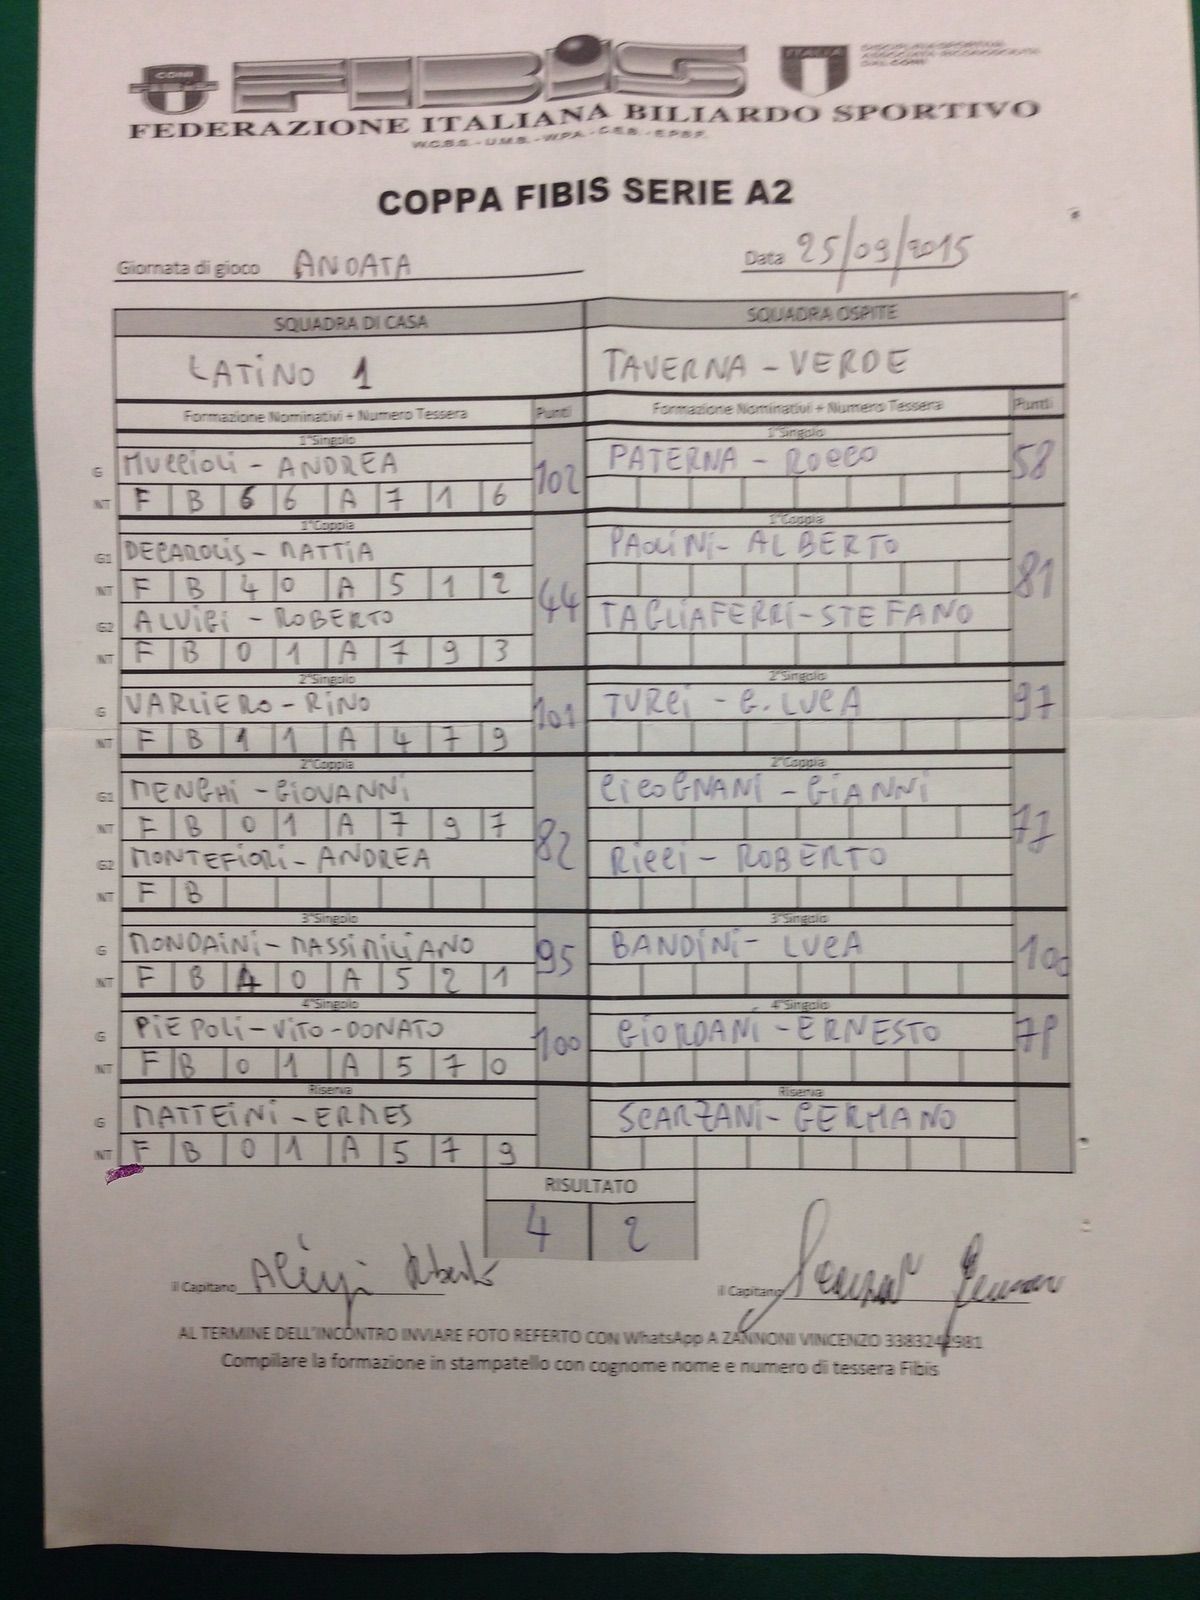 CONI
FIBiS
ITALIA
FEDERAZIONE ITALIANA BILIARDO SPORTIVO
W.C.B.S. - U.M.B. - W.P.A. - C.E.B. - E.P.B.F.
COPPA FIBIS SERIE A2
Giornata di gioco ANDATA Data 25/09/2015
SQUADRA DI CASA SQUADRA OSPITE
LATINO 1 TAVERNA - VERDE
Formazione Nominativi + Numero Tessera Punti Formazione Nominativi + Numero Tessera Punti
1°Singolo 1°Singolo
G MUCCIOLI - ANDREA 102 PATERNA - ROCCO 58
NT F B 6 6 A 7 1 6
1°Coppia 1°Coppia
G1 DECAROLIS - MATTIA 44 PAOLINI - ALBERTO 81
NT F B 4 0 A 5 1 2
G2 ALUIGI - ROBERTO TAGLIAFERRI - STEFANO
NT F B 0 1 A 7 9 3
2°Singolo 2°Singolo
G VARLIERO - RINO 101 TURCI - G. LUCA 97
NT F B 1 1 A 4 7 9
2°Coppia 2°Coppia
G1 MENGHI - GIOVANNI 82 CICOGNANI - GIANNI 77
NT F B 0 1 A 7 9 7
G2 MONTEFIORI - ANDREA RICCI - ROBERTO
NT F B
3°Singolo 3°Singolo
G MONDAINI - MASSIMILIANO 95 BANDINI - LUCA 100
NT F B 4 0 A 5 2 1
4°Singolo 4°Singolo
G PIEPOLI - VITO - DONATO 100 GIORDANI - ERNESTO
NT F B 0 1 A 5 7 0
Riserva Riserva
G MATTEINI - ERMES SCARZANI - GERMANO
NT F B 0 1 A 5 7 9
RISULTATO
4 2
il Capitano Aluigi Roberto il Capitano
AL TERMINE DELL'INCONTRO INVIARE FOTO REFERTO CON WhatsApp A ZANNONI VINCENZO 3383242981
Compilare la formazione in stampatello con cognome nome e numero di tessera Fibis